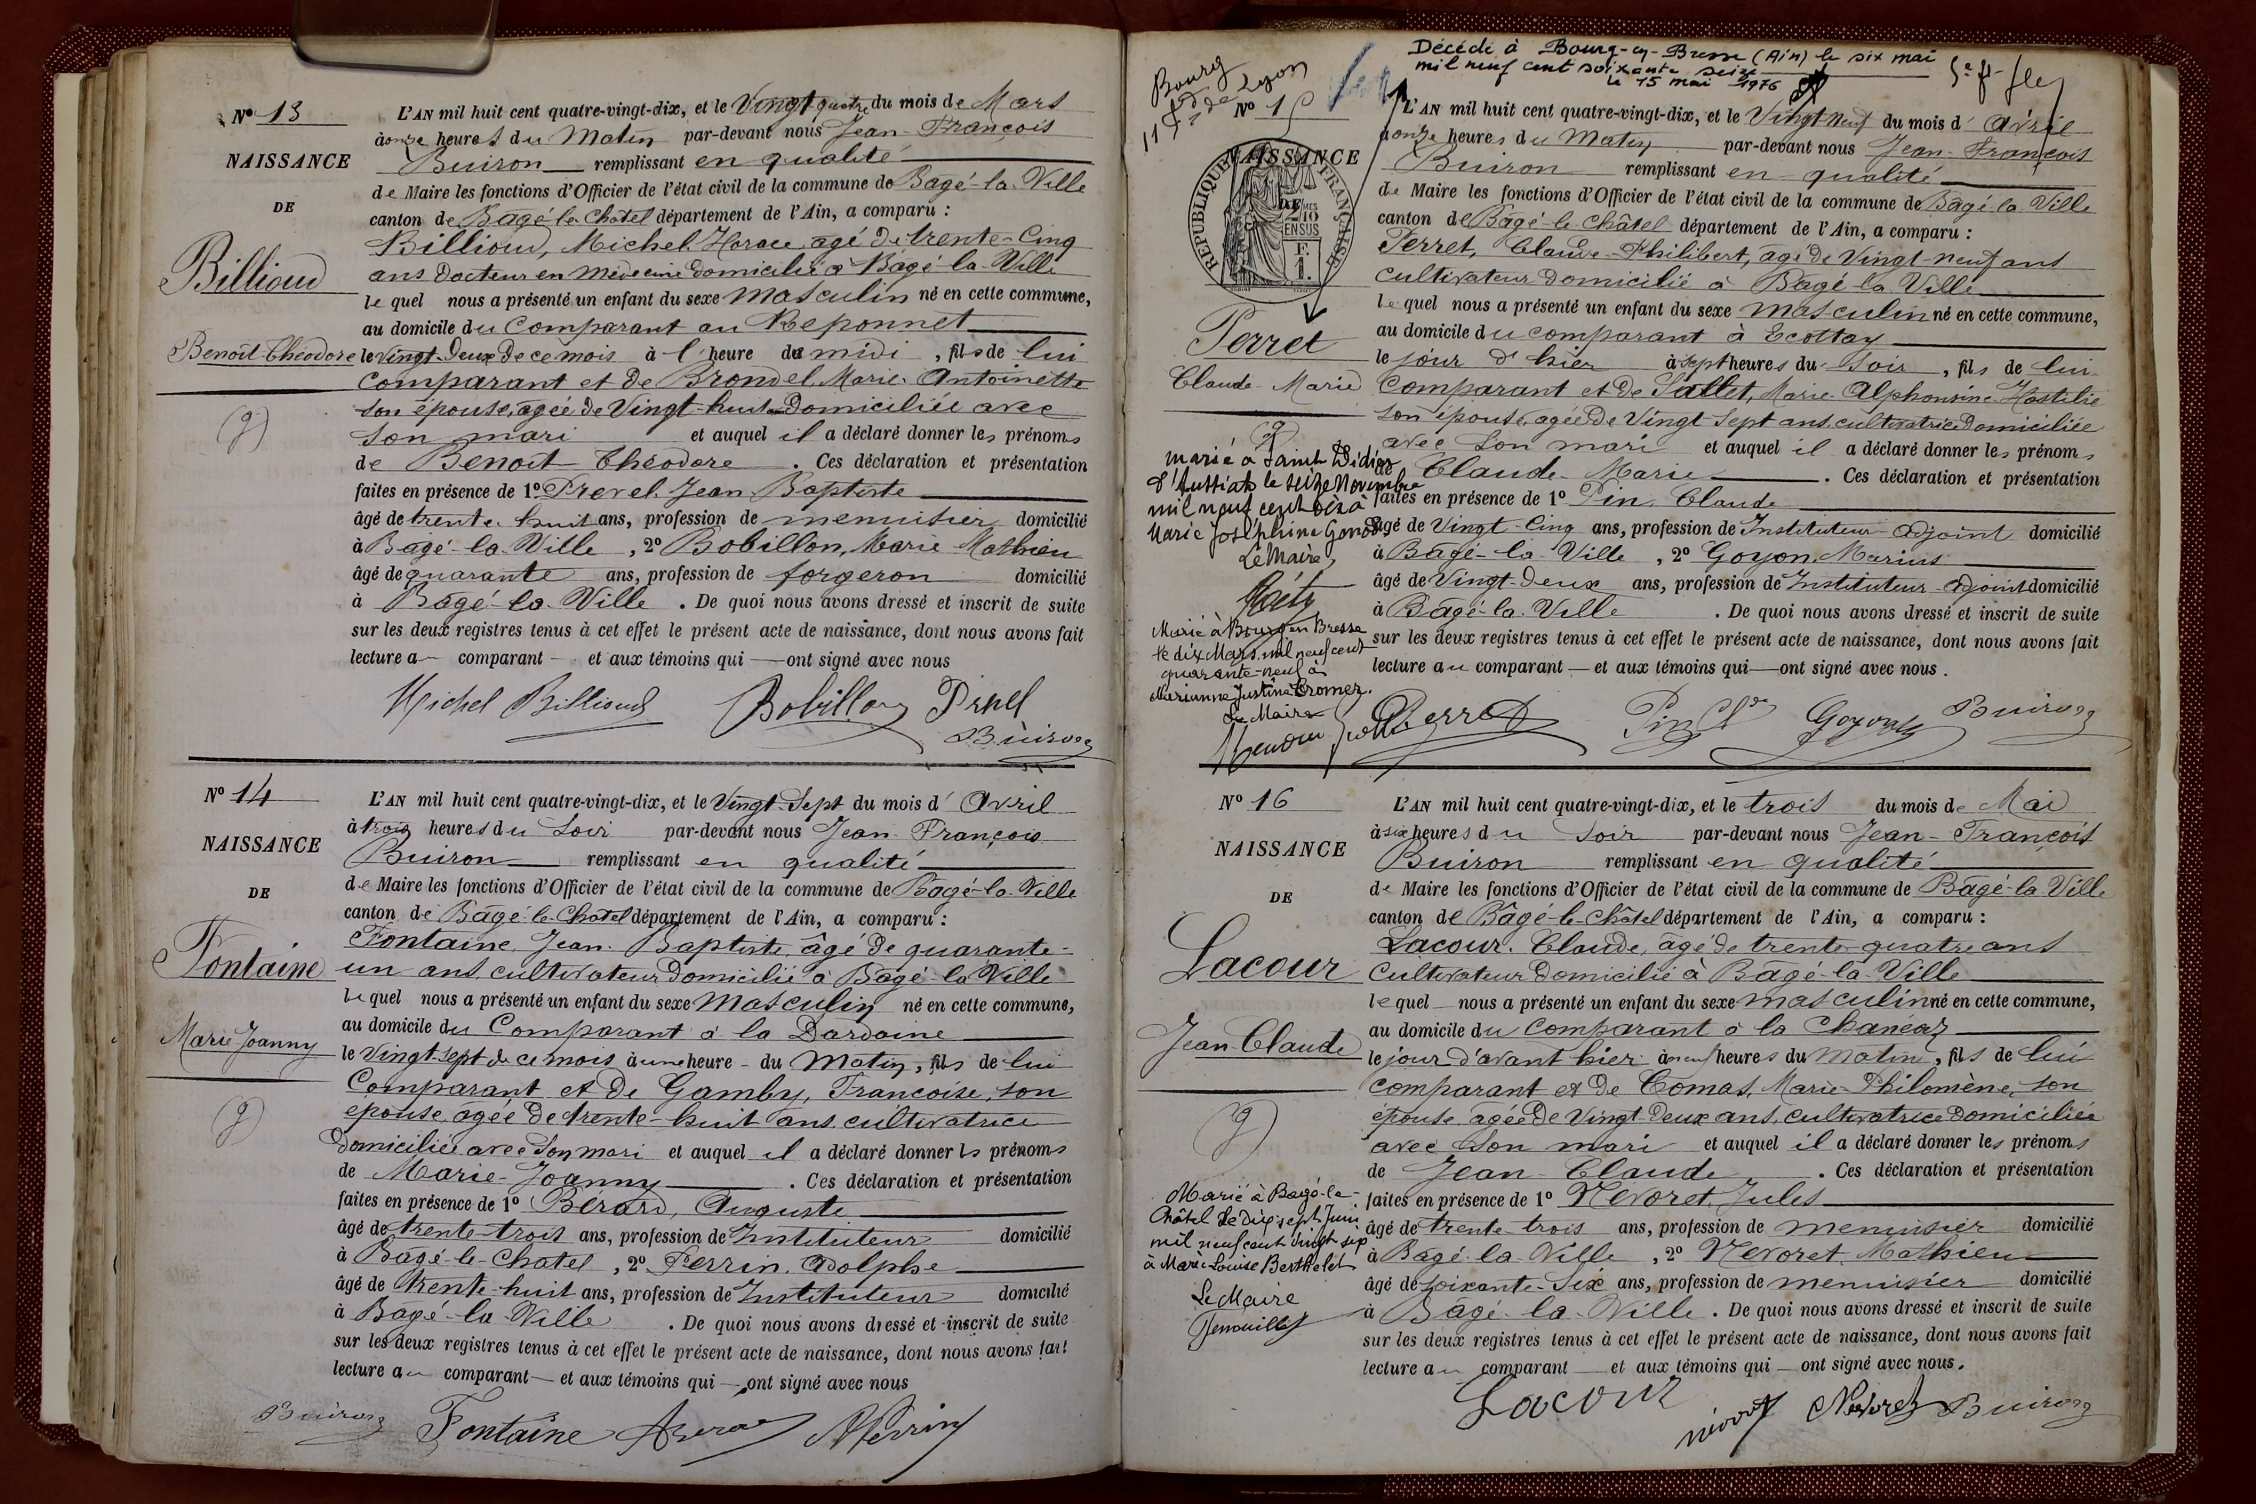 N° 13
NAISSANCE
DE
Billioud
Benoît-Théodore
L'AN mil huit cent quatre-vingt-dix, et le Vingt quatre du mois de Mars
à onze heures du Matin par-devant nous Jean-François
Buiron remplissant en qualité
de Maire les fonctions d'Officier de l'état civil de la commune de Bagé-la-Ville
canton de Bagé-le-Châtel département de l'Ain, a comparu :
Billioud, Michel Horace agé de trente-Cinq
ans Docteur en Médecine domicilié à Bagé-la-Ville
le quel nous a présenté un enfant du sexe Masculin né en cette commune,
au domicile du Comparant au Reponnet
le Vingt-Deux de ce mois à l'heure de midi, fils de lui
Comparant et de Brondel Marie-Antoinette
son épouse, agée de Vingt-huit Domiciliée avec
son mari et auquel il a déclaré donner les prénoms
de Benoit-Théodore. Ces déclaration et présentation
faites en présence de 1° Prevel Jean Baptiste
âgé de trente-huit ans, profession de menuisier domicilié
à Bagé-la-Ville, 2° Bobillon, Marie Mathieu
âgé de quarante ans, profession de forgeron domicilié
à Bagé-la-Ville. De quoi nous avons dressé et inscrit de suite
sur les deux registres tenus à cet effet le présent acte de naissance, dont nous avons fait
lecture au comparant et aux témoins qui ont signé avec nous
Michel Billioud Bobillon Prevel
Buiron
N° 14
NAISSANCE
DE
Fontaine
Marie Joanny
L'AN mil huit cent quatre-vingt-dix, et le Vingt-Sept du mois d'Avril
à trois heures du Soir par-devant nous Jean-François
Buiron remplissant en qualité
de Maire les fonctions d'Officier de l'état civil de la commune de Bagé-la-Ville
canton de Bagé-le-Chatel département de l'Ain, a comparu :
Fontaine, Jean-Baptiste, âgé de quarante-
un ans, cultivateur domicilié à Bagé-la-Ville
le quel nous a présenté un enfant du sexe Masculin né en cette commune,
au domicile du Comparant à la Dardaine
le Vingt-sept de ce mois à une heure du Matin, fils de lui
Comparant et de Gamby, Françoise, son
épouse, agée de trente-huit ans cultivatrice
domiciliée avec son mari et auquel il a déclaré donner les prénoms
de Marie-Joanny. Ces déclaration et présentation
faites en présence de 1° Bérard, Auguste
âgé de trente-trois ans, profession de Instituteur domicilié
à Bagé-le-Chatel, 2° Perrin, Adolphe
âgé de trente-huit ans, profession de Instituteur domicilié
à Bagé-la-Ville. De quoi nous avons dressé et inscrit de suite
sur les deux registres tenus à cet effet le présent acte de naissance, dont nous avons fait
lecture au comparant et aux témoins qui ont signé avec nous
Buiron Fontaine Perrin
Décédé à Bourg-en-Bresse (Ain) le six mai
mil neuf cent soixante seize
le 15 mai 1976
Bourg
N° 15
NAISSANCE
DE
REPUBLIQUE FRANÇAISE
Perret
Claude-Marie
marié à Saint Didier
d'Aussiat le seize Novembre
mil neuf cent dix à
Marie Joséphine Gonod
Le Maire,
Marié à Bourg en Bresse
le dix Mars mil neuf cent
quarante-neuf à
Marianne Justine Cromer.
Le Maire
L'AN mil huit cent quatre-vingt-dix, et le Vingt neuf du mois d'Avril
à onze heures du Matin par-devant nous Jean-François
Buiron remplissant en qualité
de Maire les fonctions d'Officier de l'état civil de la commune de Bâgé-la-Ville
canton de Bâgé-le-Châtel département de l'Ain, a comparu :
Perret, Claude-Philibert, agé de Vingt-neuf ans
cultivateur domicilié à Bâgé-la-Ville
le quel nous a présenté un enfant du sexe masculin né en cette commune,
au domicile du comparant à Ecottay
le jour d'hier à sept heures du Soir, fils de lui
Comparant et de Sallet, Marie-Alphonsine-Hostilie
son épouse, agée de Vingt Sept ans, cultivatrice domiciliée
avec son mari et auquel il a déclaré donner les prénoms
de Claude-Marie. Ces déclaration et présentation
faites en présence de 1° Pin, Claude
âgé de Vingt-Cinq ans, profession de Instituteur-adjoint domicilié
à Bâgé-la-Ville, 2° Goyon, Marius
âgé de Vingt-Deux ans, profession de Instituteur-adjoint domicilié
à Bâgé-la-Ville. De quoi nous avons dressé et inscrit de suite
sur les deux registres tenus à cet effet le présent acte de naissance, dont nous avons fait
lecture au comparant et aux témoins qui ont signé avec nous.
Perret Pin Cde Goyon Buiron
N° 16
NAISSANCE
DE
Lacour
Jean-Claude
Marié à Bagé-le-
Châtel le dix-sept Juin
mil neuf cent vingt sep
à Marie Louise Berthelet
Le Maire
L'AN mil huit cent quatre-vingt-dix, et le trois du mois de Mai
à six heures du Soir par-devant nous Jean-François
Buiron remplissant en qualité
de Maire les fonctions d'Officier de l'état civil de la commune de Bâgé-la-Ville
canton de Bâgé-le-Châtel département de l'Ain, a comparu :
Lacour, Claude, agé de trente-quatre ans
Cultivateur domicilié à Bâgé-la-Ville
le quel nous a présenté un enfant du sexe masculin né en cette commune,
au domicile du Comparant à la Chanéaz
le jour d'avant hier à neuf heures du Matin, fils de lui
comparant et de Comas, Marie-Philomène, son
épouse, agée de Vingt-Deux ans, cultivatrice domiciliée
avec son mari et auquel il a déclaré donner les prénoms
de Jean-Claude. Ces déclaration et présentation
faites en présence de 1° Nevoret, Jules
âgé de trente-trois ans, profession de menuisier domicilié
à Bâgé-la-Ville, 2° Nevoret Mathieu
âgé de soixante-Six ans, profession de menuisier domicilié
à Bagé-la-Ville. De quoi nous avons dressé et inscrit de suite
sur les deux registres tenus à cet effet le présent acte de naissance, dont nous avons fait
lecture au comparant et aux témoins qui ont signé avec nous.
Lacour Nevoret Buiron